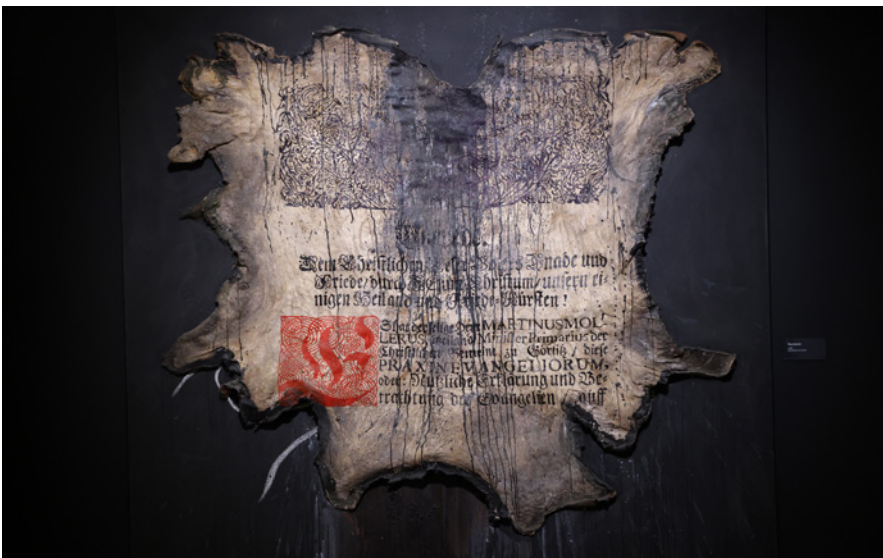 Vorrede.
Dem Christlichen Leser Gnade und
Friede / durch JEsum Christum / unsern ei-
nigen Heiland und Friede-Fürsten!
ES hat der selige Herr MARTINUS MOL-
LERUS, Minister Primarius der
Christlichen Gemeine zu Görlitz / diese
PRAXIN EVANGELIORUM,
oder: Deutliche Erklärung und Be-
trachtung der Evangelien / auff